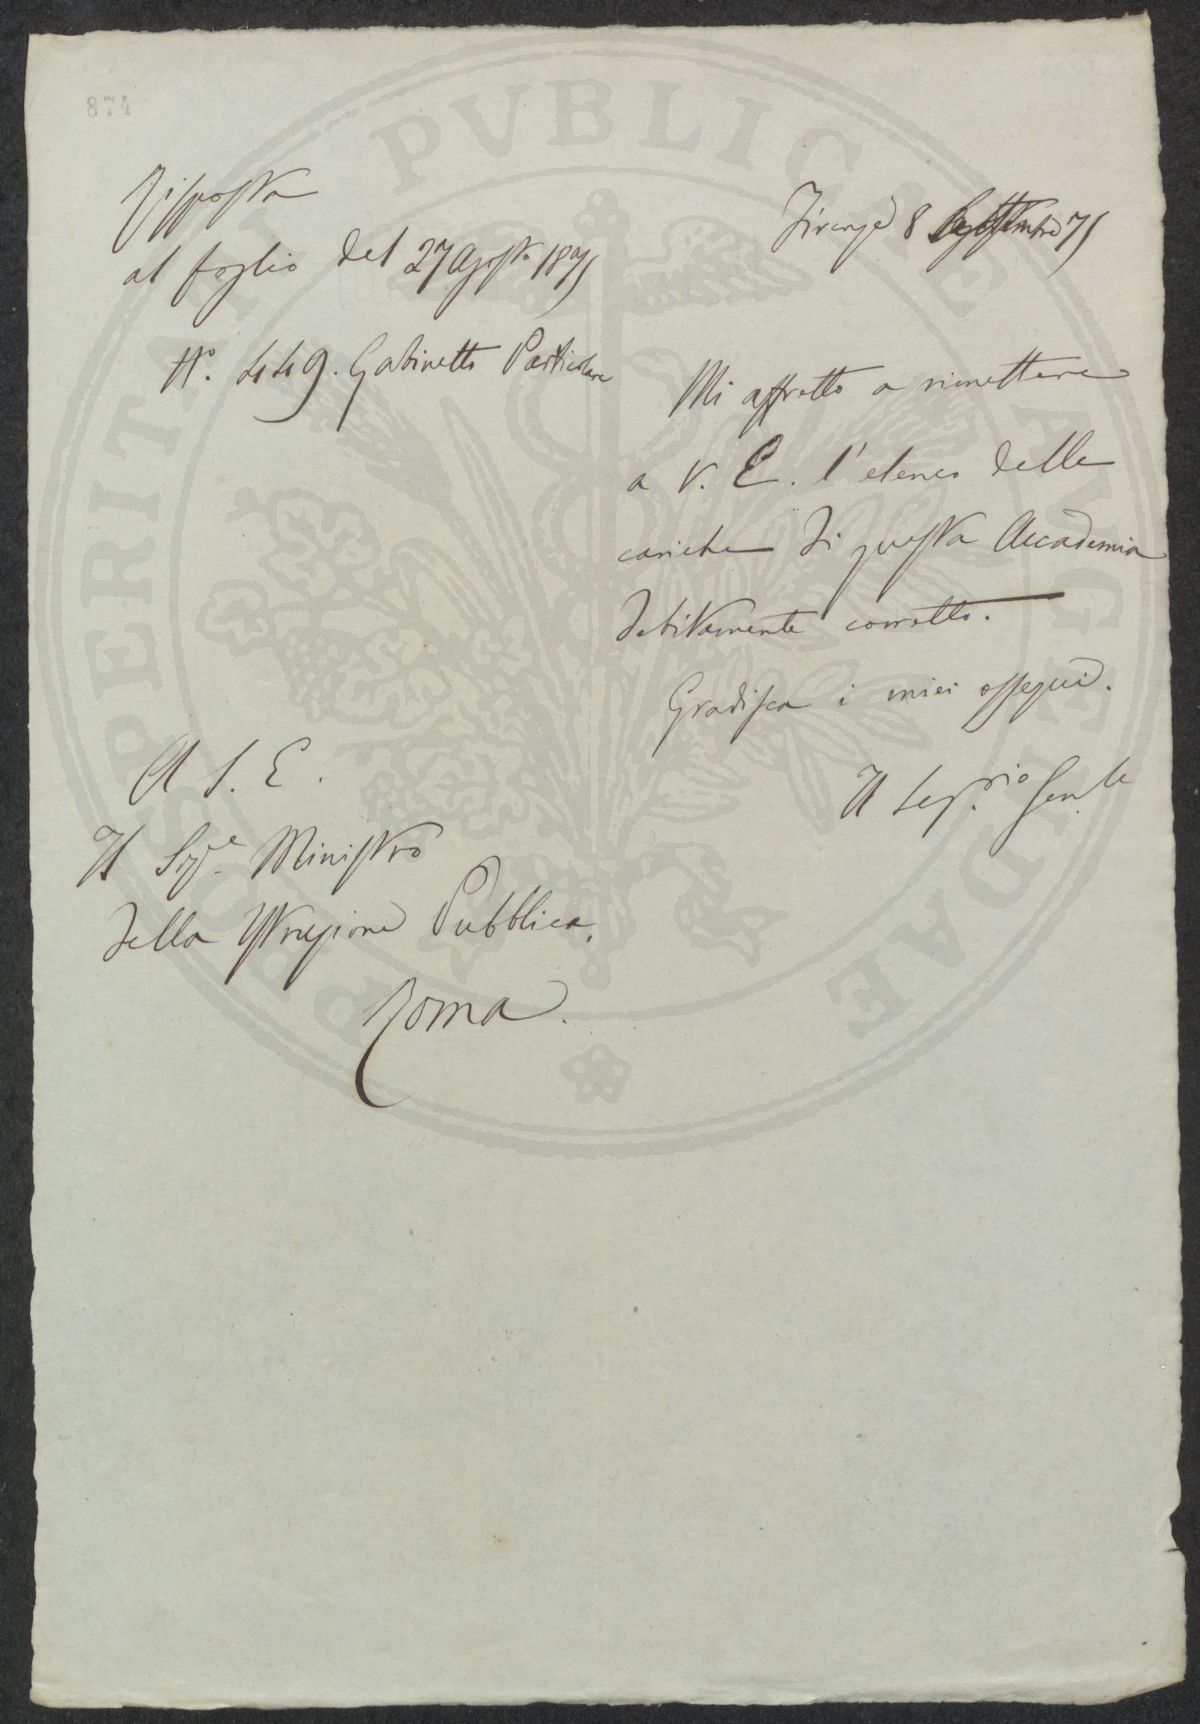 874
Risposta
al foglio del 27 Agosto 1871
N°. 449. Gabinetto Particolare
Firenze 8 Settembre 71
Mi affretto a rimettere
a V. E. l'elenco delle
cariche di questa Accademia
debitamente corretto.
Gradisca i miei ossequi.
Il Seg.rio Gen.le
A S. E.
Il Sig.e Ministro
della Istruzione Pubblica.
Roma.
PROSPERITATI PVBLICAE AVGENDAE